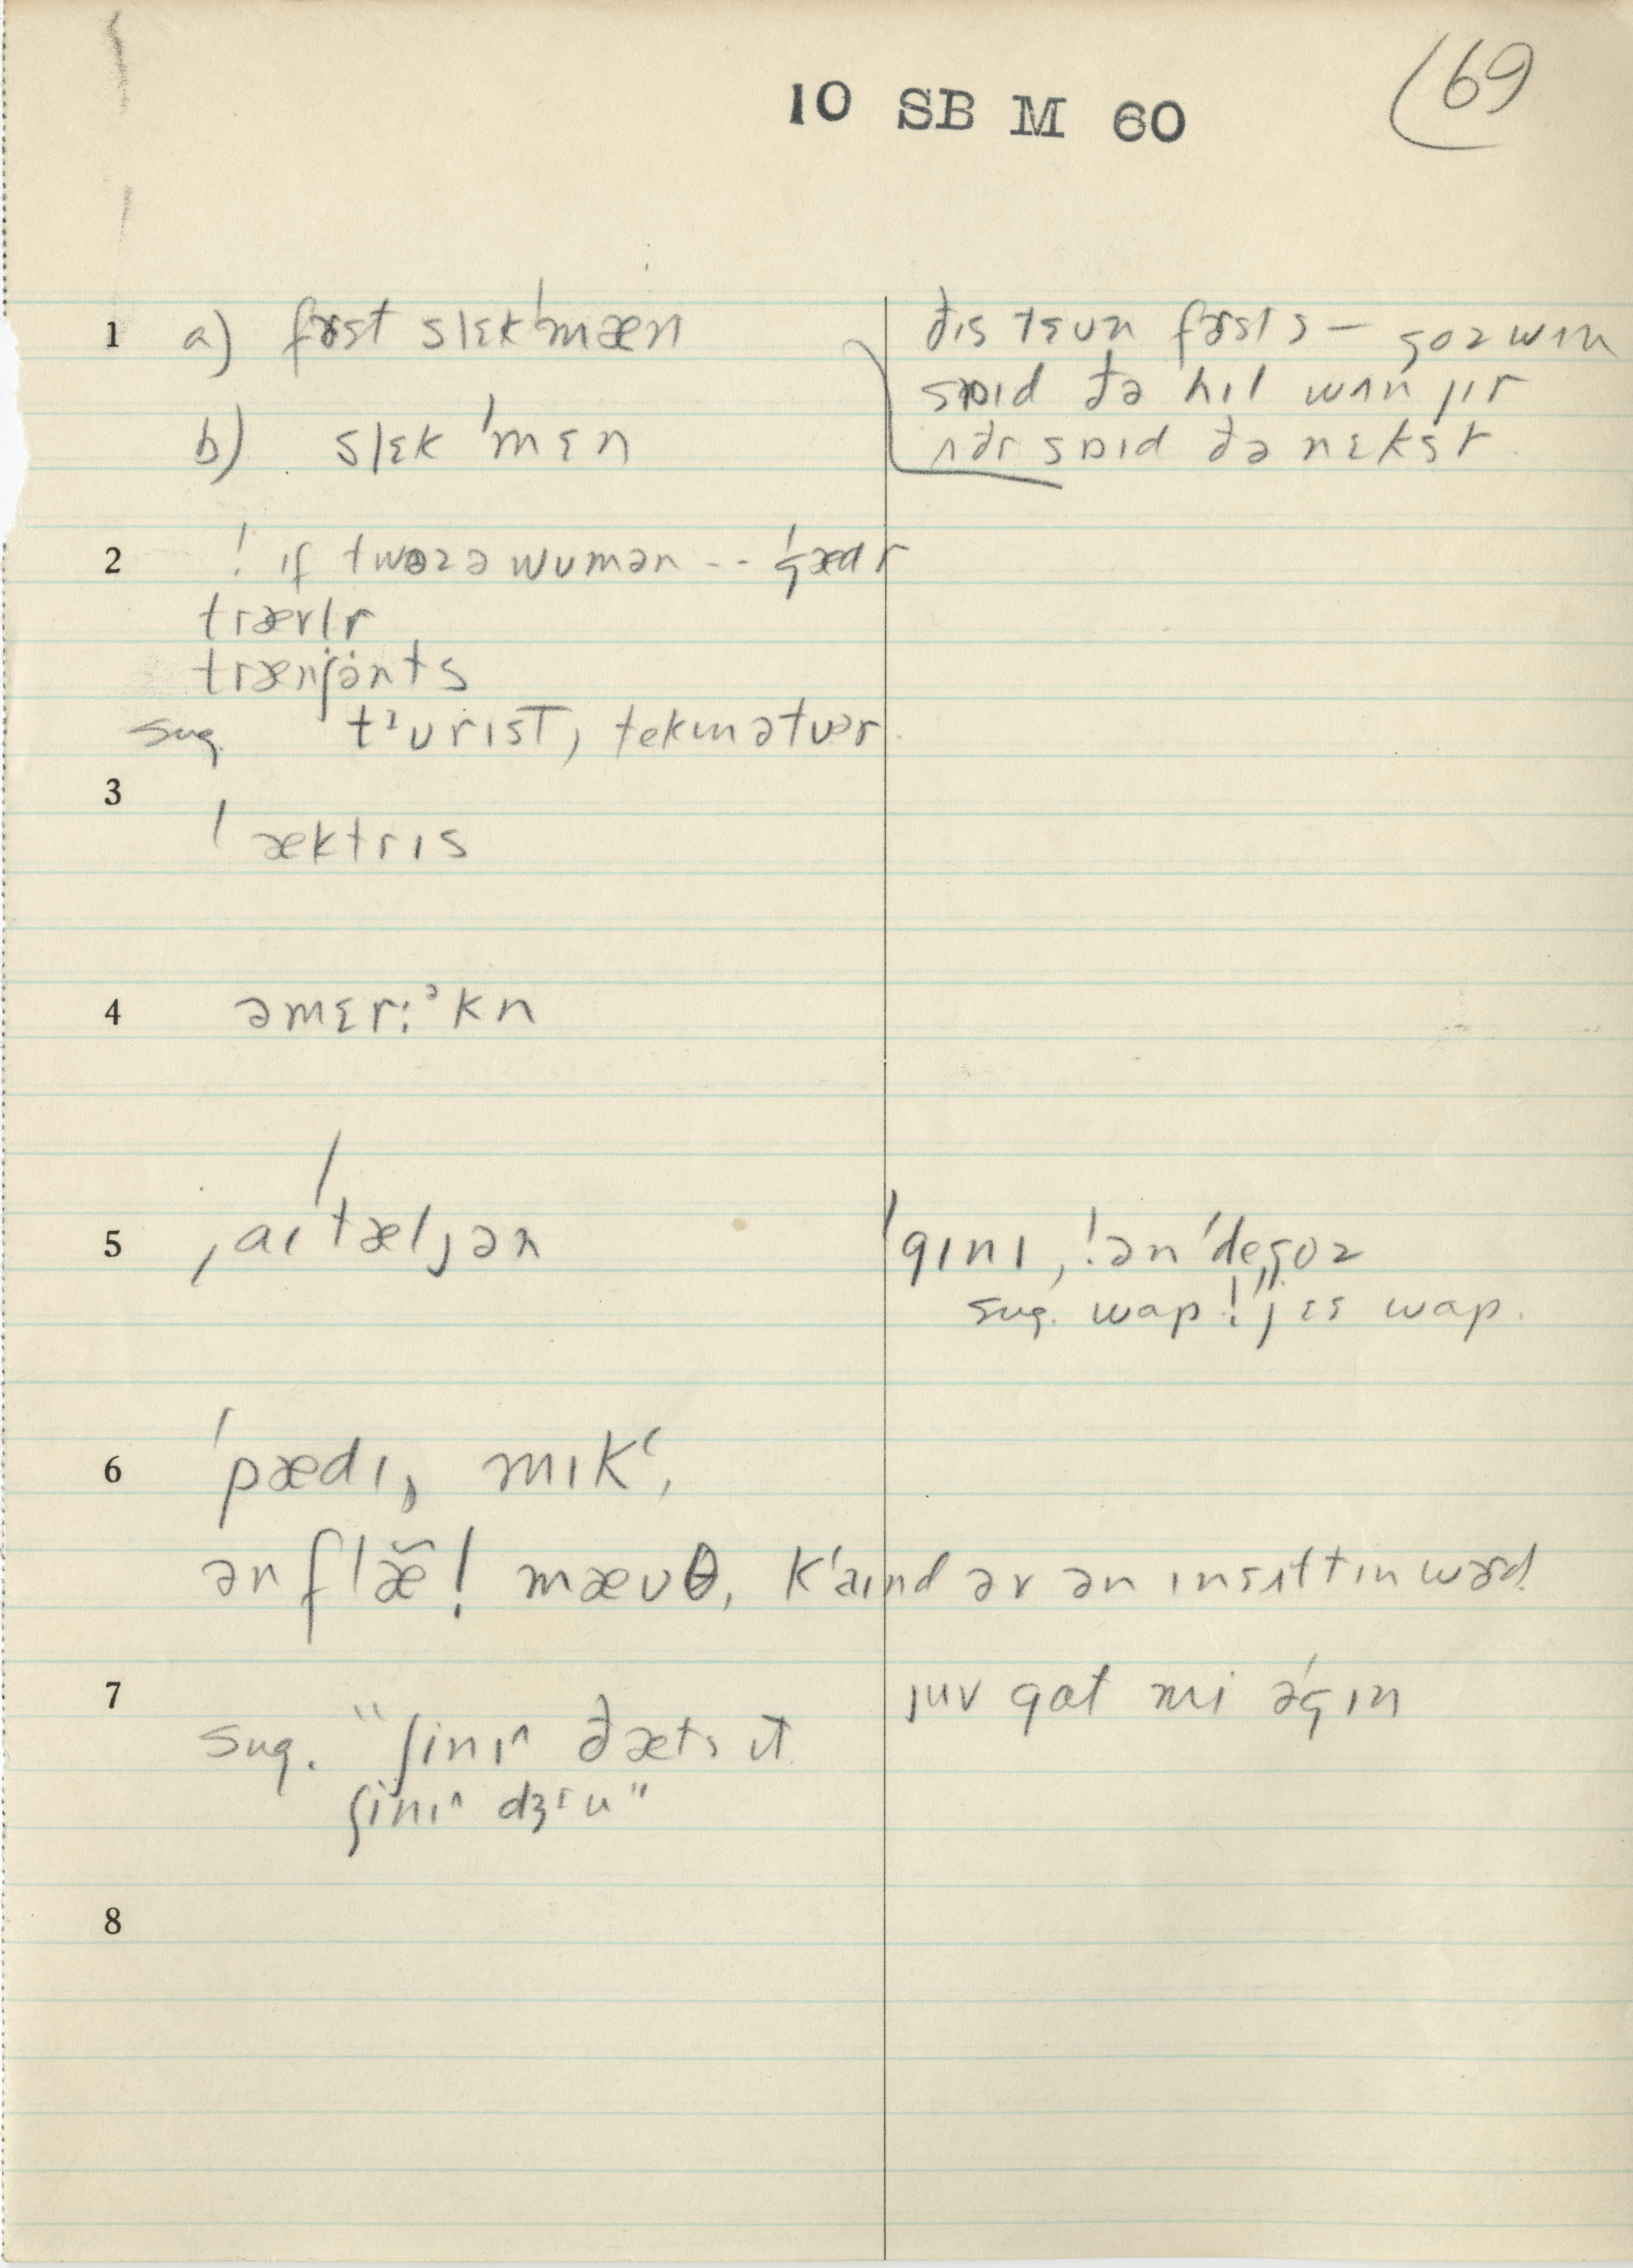 10 SB M 60
69
1 a) fɚst slɛkˈmæn
b) slɛk ˈmɛn
ðɪs tɛʊn fɚsts — goz wʌn
sɒɪd ðə hɪl wʌn jɪr
ʌðr sɒɪd ðə nɛkst
2 ! ɪf twəz ə wumən -- ˈgædr
trævlr
trænʃənts
sug. tᶾurɪst, tekɪnətuər
3 ˈæktrɪs
4 əmɛr:ᵊkn
5 ˌaɪˈtæljən
ˈgɪnɪ, !ən ˈdegoz
sug. wap ! "jɛs wap.
6 ˈpædɪ, mɪkʻ,
ən flæ̆! mæʊθ, kʻaɪnd əv ən ɪnsʌltɪn wɚd.
7 juv gat mi əˈgɪn
sug. "ʃinɪ^ ðæts ɪt
ʃinɪ^ dʒru"
8